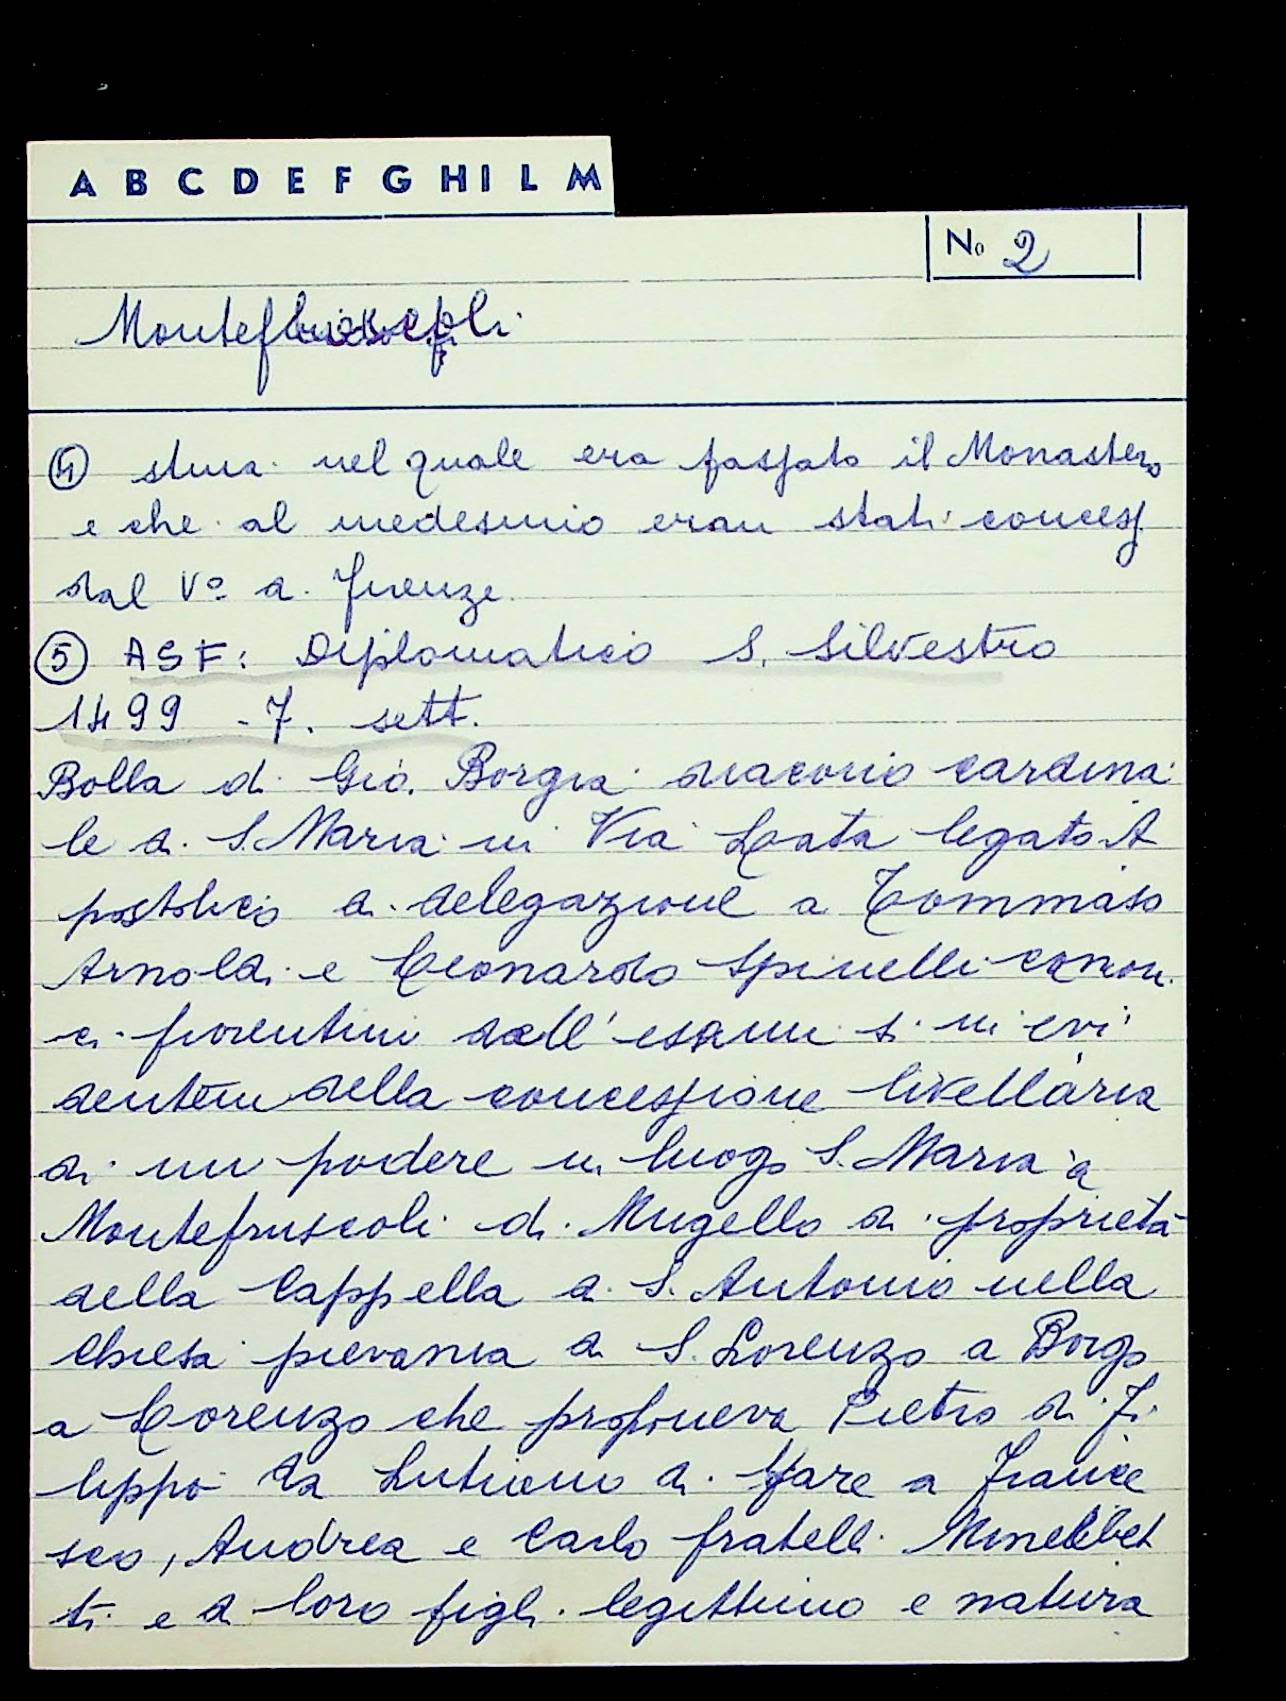 A B C D E F G H I L M
No 2
Montefruscoli
④ stura nel quale era passato il Monastero
e che al medesimo eran stati concess
dal Vº di Firenze.
⑤ ASF: Diplomatico S. Silvestro
1499 - 7. sett.
Bolla di Gio. Borgia diacono cardina
le di S. Maria in Via Lata legato A
postolico di delegazione a Tommaso
Arnoldi e Leonardo Spinelli canon
ci fiorentini dell'esame s. in evi
dentem della concessione livellaria
di un podere in luogo S. Maria a
Montefruscoli di Mugello di proprietà
della Cappella di S. Antonio nella
chiesa pievania di S. Lorenzo a Borgo
a Lorenzo che proponeva Pietro di Fi
lippo da Lutiano di fare a France
sco, Andrea e Carlo fratelli Minerbet
ti e di loro figli legittimo e natura